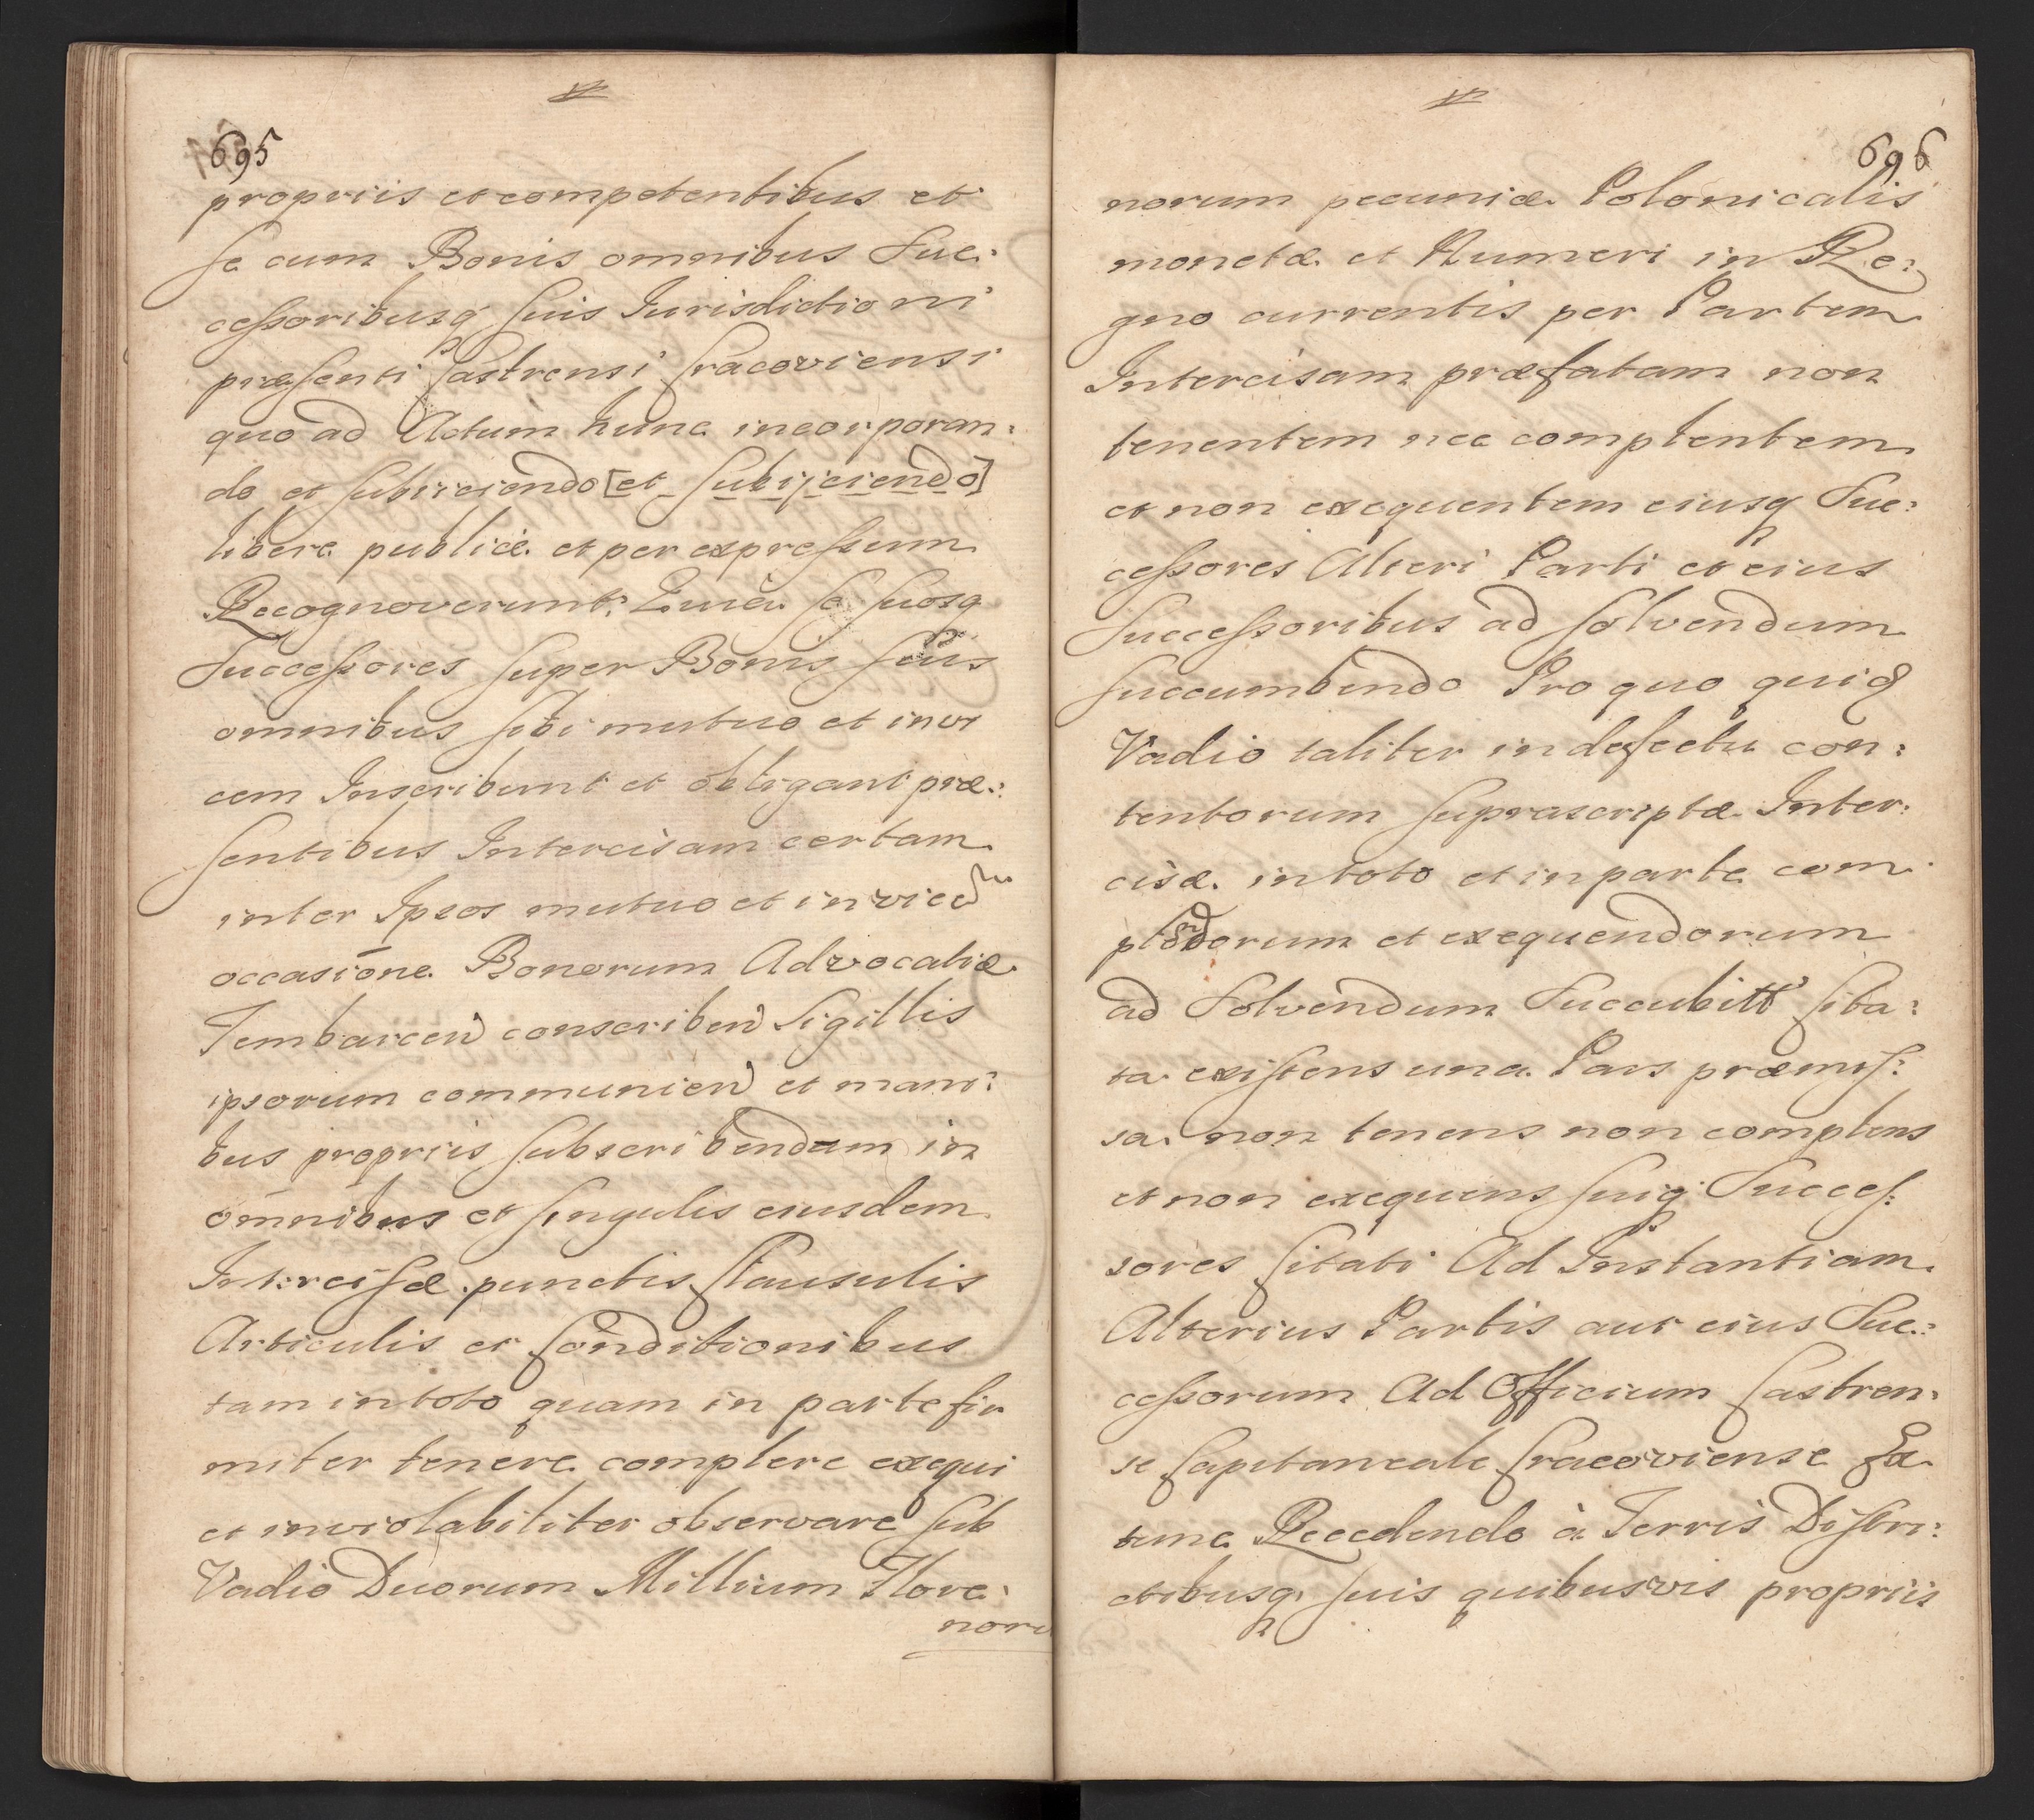 695
propriis et competentibus et
se cum Bonis omnibus Suc:
cessoribusq suis Iurisdictioni
præsenti Castrensi Cracoviensi
quo ad Actum hunc incorporan:
do et subiiciendo [et subijciendo]
libere publice et per expressum
Recognoverunt; Quia se suosq
Successores super Bonis suis
omnibus sibi mutuo et invi
cem Inscribunt et obligant præ:
sentibus Intercisam certam
inter Ipsos mutuo et invicem
occasione Bonorum Advocatiæ
Tembarcen conscriben Sigillis
ipsorum communien et mani:
bus propriis subscribendam in
omnibus et singulis eiusdem
Intercisæ punctis Clausulis
Articulis et Conditionibus
tam in toto quam in parte fir
miter tenere complere exequi
et inviolabiliter observare sub
Vadio Duorum Millium Flore:
noru
696
norum pecuniæ Polonicalis
monetæ et Numeri in Re:
gno currentis per Partem
Intercisam præfatam non
tenentem nec complentem
et non exequentem eiusq Suc:
cessores Alteri Parti et eius
Successoribus ad solvendum
succumbendo Pro quo quid
Vadio taliter in defectu con:
tentorum suprascriptæ Inter:
cisæ in toto et in parte com
plendorum et exequendorum
ad Solvendum Succubitt Cita:
ta existens una Pars præmis:
sa non tenens non complens
et non exequens suiq Succes:
sores Citati Ad Instantiam
Alterius Partis aut eius Suc:
cessorum Ad Officium Castren:
se Capitaneale Cracoviense Ex
tunc Recedendo à Terris Distri:
ctibusq suis quibusvis propriis